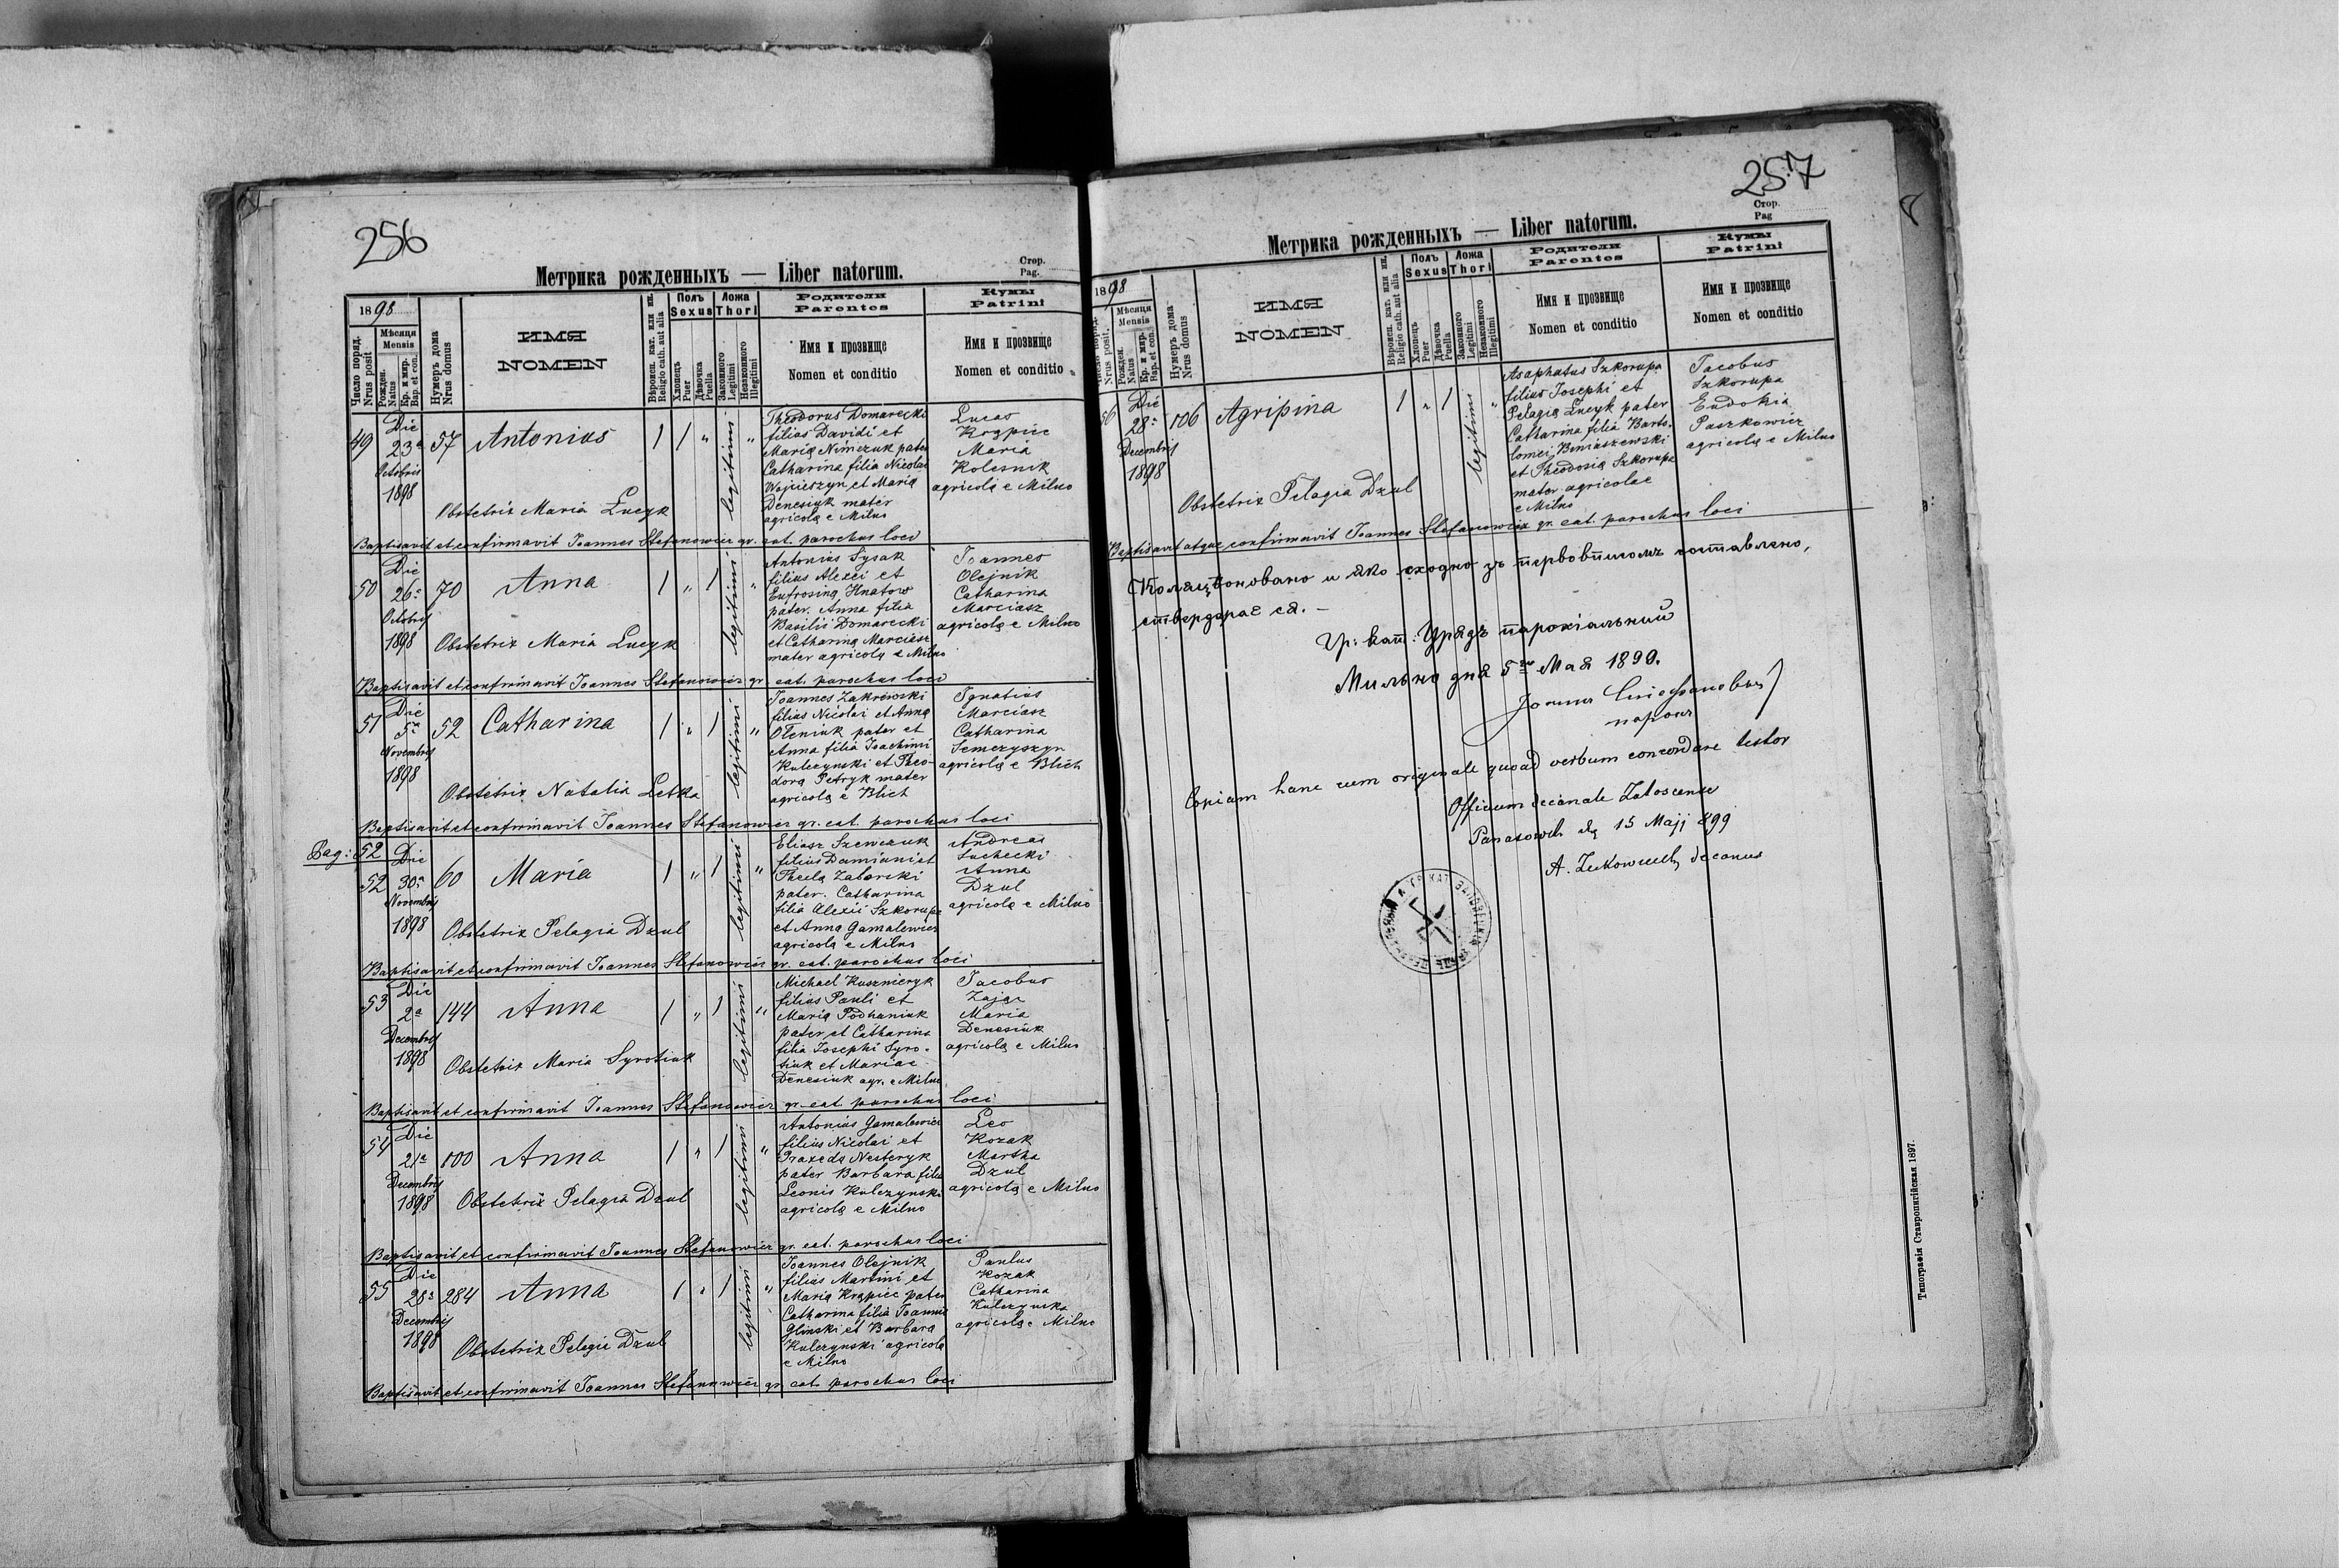 256
Метрика рожденныхъ — Liber natorum.
Стор.
Pag.
1898
Число поряд.
Nrus posit
Мѣсяця
Mensis
Рожден.
Natus
Кр. и мѵр.
Bap. et con.
Нумеръ дома
Nrus domus
ИМЯ
NOMEN
Вѣроисп. кат. или ин.
Religio cath. aut alia
Полъ
Sexus
Хлопець
Puer
Дѣвочка
Puella
Ложа
Thori
Законного
Legitimi
Незаконного
Illegitimi
Родители
Parentes
Имя и прозвище
Nomen et conditio
Кумы
Patrini
Имя и прозвище
Nomen et conditio
49
Die
23a
Octobris
1898
57
Antonius
1 1 "
legitimi
"
Theodorus Domarecki
filius Davidi et
Maria Nimczuk pater
Catharina filia Nicolai
Wojcieszyn et Maria
Denesiuk mater
agricolą e Milno
Lucas
Krąpiec
Maria
Kolesnik
agricolą e Milno
Obstetrix Maria Łucyk
Baptisavit et confirmavit Joannes Stefanowicz gr. cat. parochus loci
50
Die
26a
Octobris
1898
70
Anna
1 " 1
legitimi
"
Antonius Sysak
filius Alexei et
Eufrosiną Hnatow
pater. Anna filia
Basilii Domarecki
et Catharina Marciasz
mater agricolą e Milno
Joannes
Olejnik
Catharina
Marciasz
agricolą e Milno
Obstetrix Maria Łucyk
Baptisavit et confirmavit Joannes Stefanowicz gr. cat. parochus loci
51
Die
5a
Novembris
1898
52
Catharina
1 " 1
legitimi
"
Joannes Zakrewski
filius Nicolai et Anną
Oleniuk pater et
Anna filia Joachimi
Kulczynski et Theo-
dorą Petryk mater
agricolą e Blich
Ignatius
Marciasz
Catharina
Semczyszyn
agricolą e Blich
Obstetrix Natalia Letka
Baptisavit et confirmavit Joannes Stefanowicz gr. cat. parochus loci
Pag: 52
52
Die
30a
Novembris
1898
60
Maria
1 " 1
legitimi
"
Eliasz Szewczuk
filius Damiani et
Thecla Zaborski
pater. Catharina
filia Alexii Szkorupa
et Anna Gamalewicz
agricolą e Milno
Andreas
Suchecki
Anna
Dzul
agricolą e Milno
Obstetrix Pelagia Dzul
Baptisavit et confirmavit Joannes Stefanowicz gr. cat. parochus loci
53
Die
2a
Decembris
1898
144
Anna
1 " 1
legitimi
"
Michael Kusznieryk
filius Pauli et
Maria Podhaniuk
pater et Catharina
filia Josephi Syro-
tiuk et Mariae
Denesiuk agr. e Milno
Jacobus
Zając
Maria
Denesiuk
agricolą e Milno
Obstetrix Maria Syrotiuk
Baptisavit et confirmavit Joannes Stefanowicz gr. cat. parochus loci
54
Die
21a
Decembris
1898
100
Anna
1 " 1
legitimi
"
Antonius Gamalewicz
filius Nicolai et
Praxeda Nesteryk
pater Barbara filia
Leonis Kulczynski
agricolą e Milno
Leo
Kozak
Martha
Dzul
agricolą e Milno
Obstetrix Pelagia Dzul
Baptisavit et confirmavit Joannes Stefanowicz gr. cat. parochus loci
55
Die
28a
Decembris
1898
284
Anna
1 " 1
legitimi
"
Joannes Olejnik
filius Martini et
Maria Krąpiec pater
Catharina filia Joannis
Glinski et Barbarą
Kulczynski agricolą
e Milno
Paulus
Kozak
Catharina
Kulczynska
agricolą e Milno
Obstetrix Pelagia Dzul
Baptisavit et confirmavit Joannes Stefanowicz gr. cat. parochus loci
257
Стор.
Pag
Метрика рожденныхъ — Liber natorum.
1898
Nrus posit.
Мѣсяця
Mensis
Рожден.
Natus
Кр. и мѵр.
Bap. et con.
Нумеръ дома
Nrus domus
ИМЯ
NOMEN
Вѣроисп. кат. или ин.
Religio cath. aut alia
Полъ
Sexus
Хлопець
Puer
Дѣвочка
Puella
Ложа
Thori
Законного
Legitimi
Незаконного
Illegitimi
Родители
Parentes
Имя и прозвище
Nomen et conditio
Кумы
Patrini
Имя и прозвище
Nomen et conditio
56
Die
28a
Decembris
1898
106
Agripina
1 " 1
legitimi
"
Asaphatus Szkorupa
filius Josephi et
Pelagia Łucyk pater
Catharina filia Barto-
lomei Biniaszewski
et Theodosia Szkorupa
mater agricolae
e Milno
Jacobus
Szkorupa
Eudokia
Paszkowicz
agricolą e Milno
Obstetrix Pelagia Dzul
Baptisavit atque confirmavit Joannes Stefanowicz gr. cat. parochus loci
Коляціоновано и яко сходно зъ первовписомъ поставлено,
ствердзрає ся. –
Гр: кат: Урядъ парохіальный
Мильно дня 5го Мая 1899.
Іоаннъ Стефановичъ
парохъ
Copiam hanc cum originale quoad verbum concordare testor
Officium decanale Załoscense
Panasowch dą 15 Maji 899
decanus
Типографія Ставропигійская 1897.